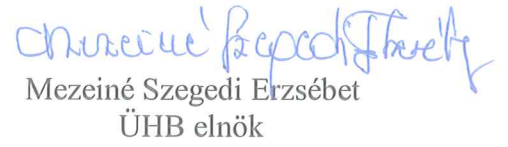 Mezeiné Szegedi Erzsébet
Mezeiné Szegedi Erzsébet
ÜHB elnök